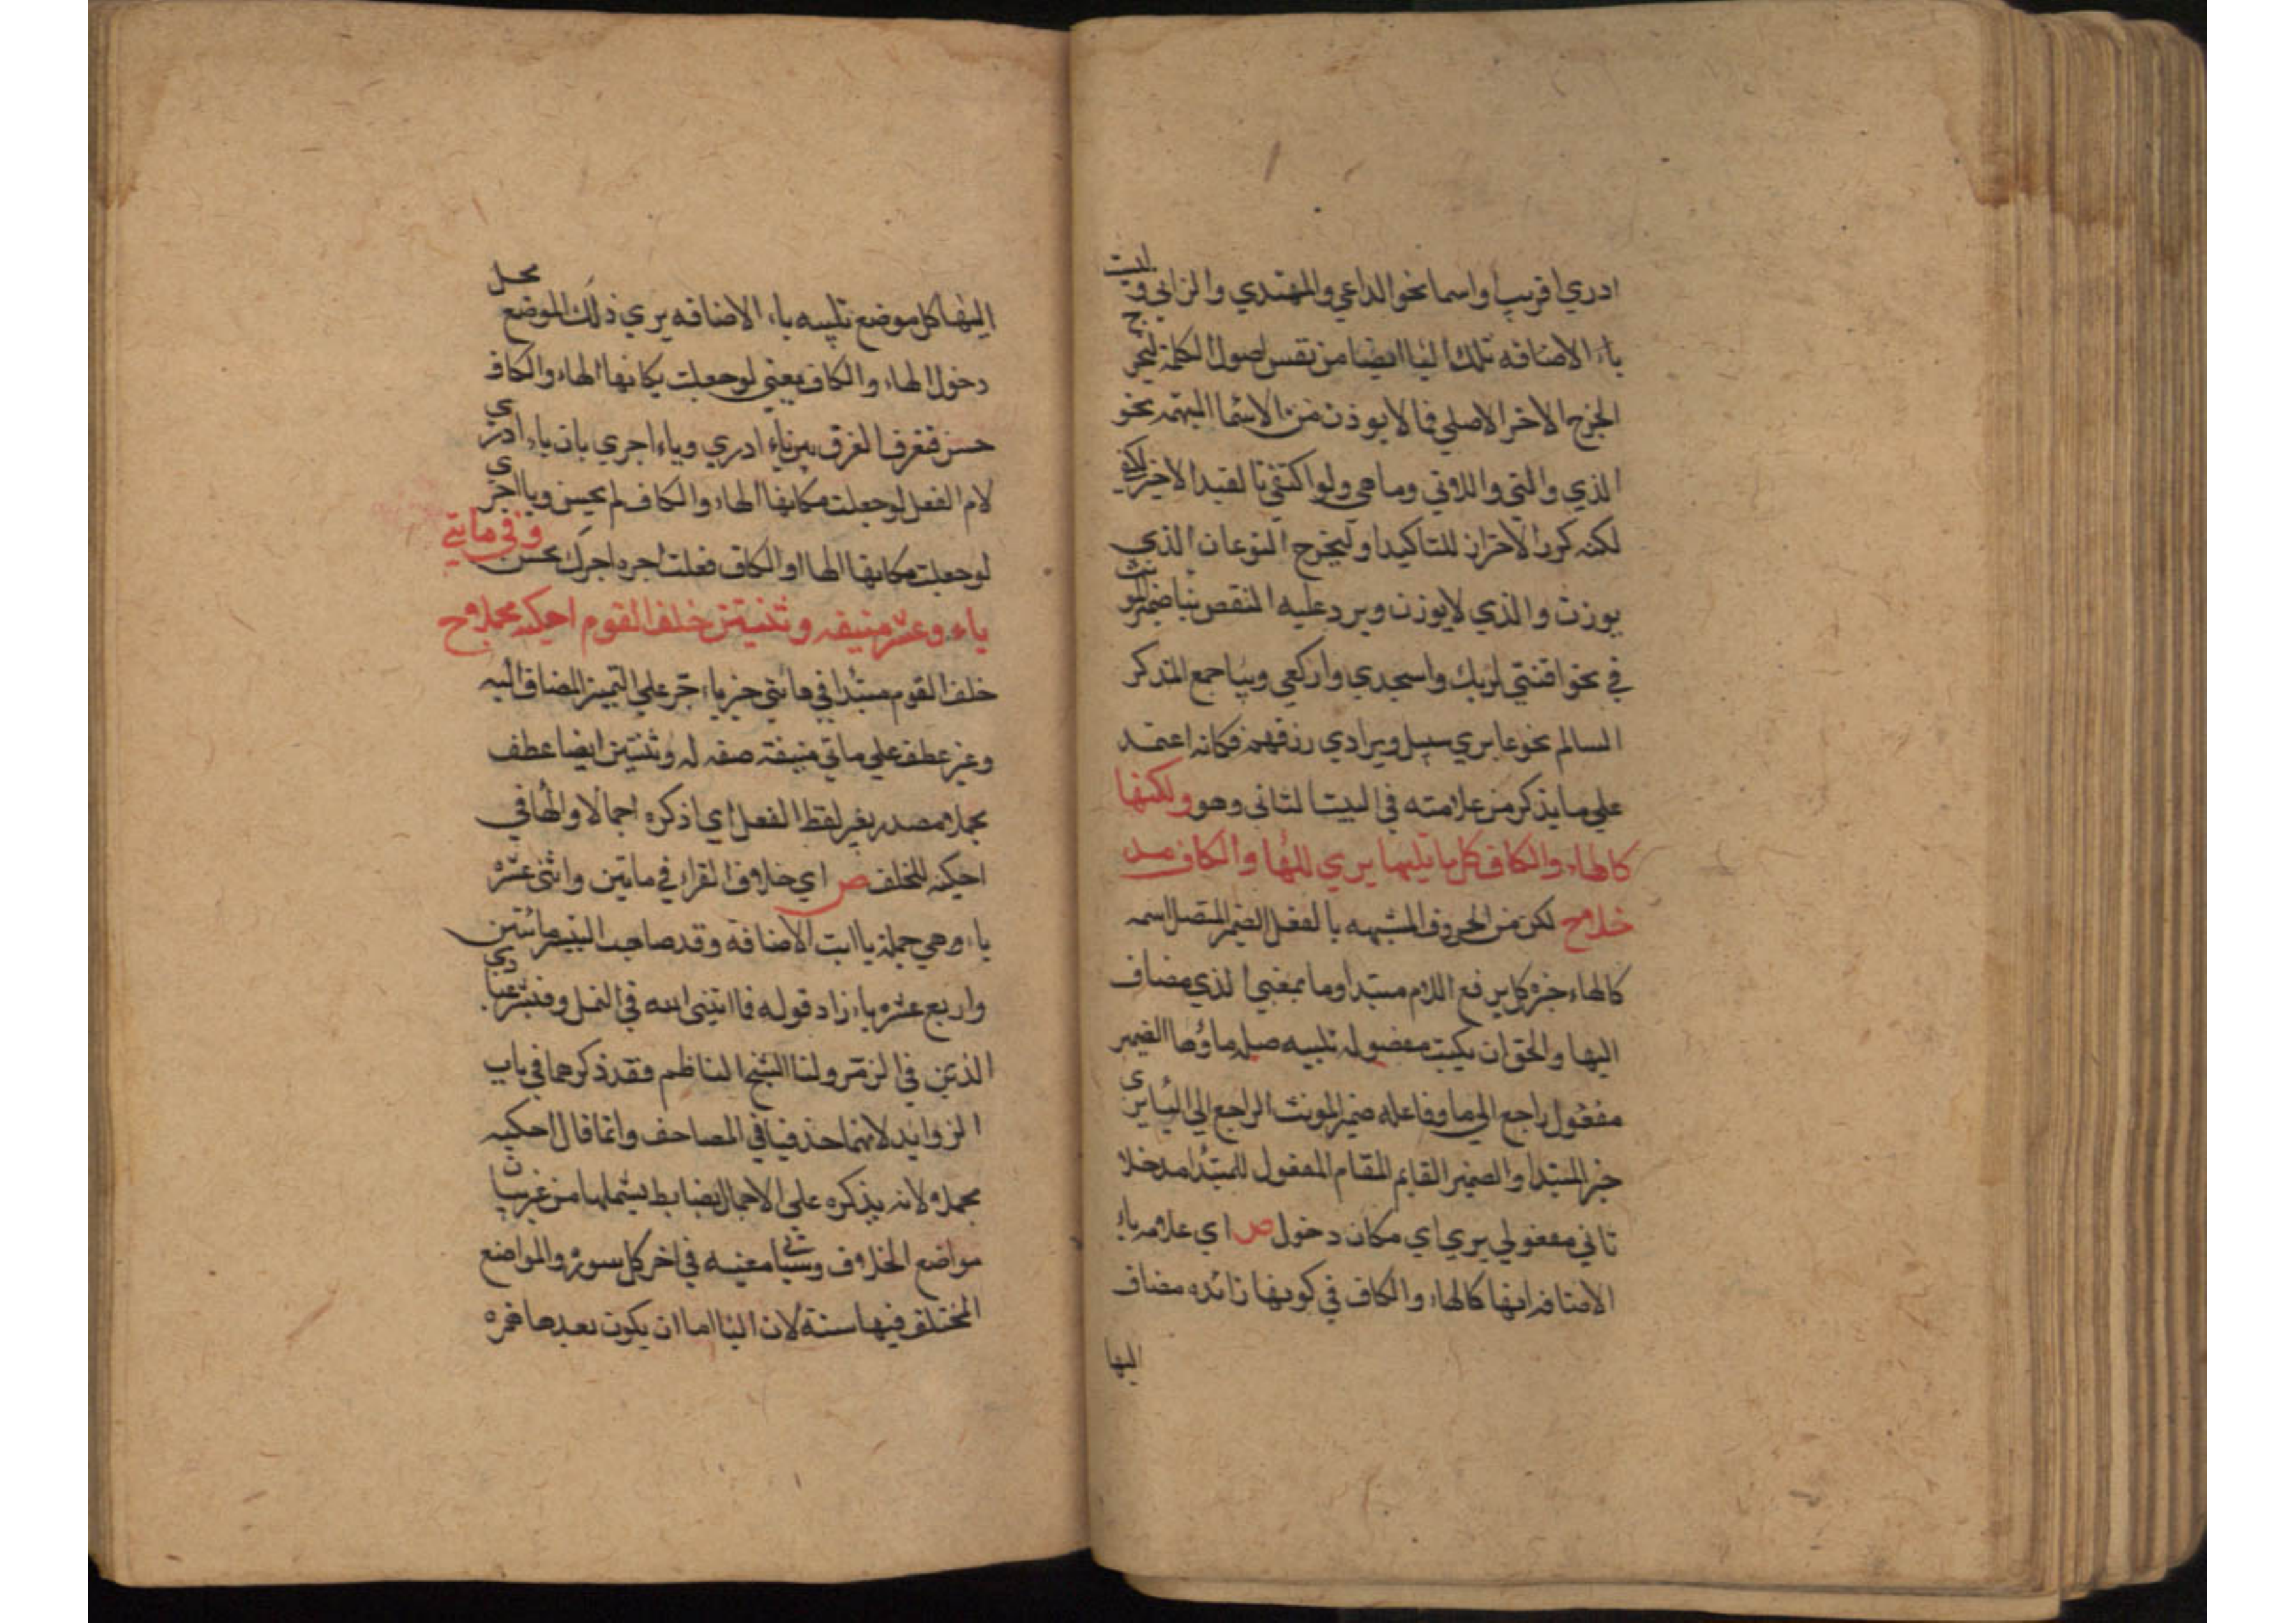 ادري اقريب او اسما نحو الداعي والمهتدي والزاني وليست
ياء الاضافه تلك اليا ايضا من نفس اصول الكلمة ليخرج
الجزح الاخر الاصلي فما لا يوذن من الاسما المبهمه نحو
الذي والتي واللاوتي وما هي ولو اكتفي بالقيد الاخير لكفي
لكنه كرر الاحتراز للتاكيد او ليخرج النوعان الذي
يوزن والذي لا يوزن ويرد عليه النقص بيا ضمير المونث
في نحو اقنتي لربك واسجدي واركعي وبيا جمع المذكر
السالم نحو عابري سبيل وبرادي رزقهم فكانه اعتمد
علي ما يذكر من علامته في البيت الثاني وهو ولكنها
كالهاء والكاف كل ما تليها يري للها والكاف مد
خلاح لكن من الحروف المشبهه بالفعل الضمير المتصل اسمه
كالهاء خبره كل يرفع اللام مبتدا وما بمعني الذي مضاف
اليها والحق ان يكتب مفصوله تليه صله ما وها الضمير
مفعول راجع الي ما وفاعله ضمير المونث الراجع الي اليا يري
خبر المبتدا والضمير القايم المقام المفعول للمبتدا مدخلا
ثاني مفعولي يري اي مكان دخول ص اي علامه ياء
الاضافه انها كالهاء والكاف في كونها زائده مضاف
اليها
اليها كل موضع تليه ياء الاضافه يري ذلك الموضع محل
دخول الهاء والكاف يعني لو جعلت مكانها الهاء والكاف
حسن فتعرف الفرق بين ياء ادري وياء اجري بان ياء ادري
لام الفعل لو جعلت مكانها الهاء والكاف لم يحسن ويا اجري
لو جعلت مكانها الها او الكاف فعلت اجره اجرك يحسن وفي مايتي
ياء وعشر منيفه وثنتين خلف القوم احكيه مجملا ح
خلف القوم مبتدا في مائتي خبر ياء جر علي التمييز المضاف اليه
وعشر عطف علي ماتي منيفة صفه له وثنتين ايضا عطف
مجملا مصدر بغير لفظ الفعل اي اذكره اجمالا والها في
احكيه للخلف ص اي خلاف القراء في مايتين واثنى عشره
ياء وهي جملة ياات الاضافة وقد صاحب التيسير مائتين
واربع عشره ياء زاد قوله فما اتيني الله في النمل وفبشر عبادي
الذين في الزمر ولنا الشيخ الناظم فقد ذكرهما في باب
الزوايد لانهما حذفتا في المصاحف وانما قال احكيه
مجملا ولانه يذكره علي الاجمال بضابط يشملها من غير بيان
مواضع الخلاف وستاتي معينه في اخر كل سورة والمواضع
المختلف فيها ستة لان اليا اما ان يكون بعدها همزه